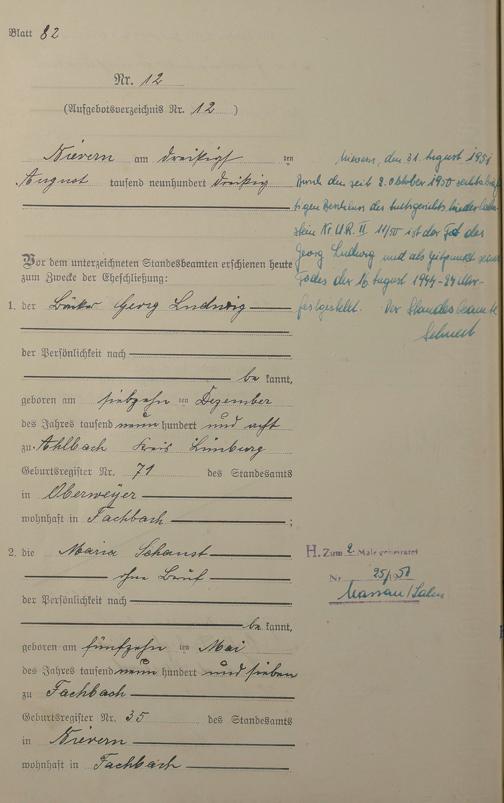 Blatt 82
Nr. 12
(Aufgebotsverzeichnis Nr. 12 )
Nievern am dreißigsten
August tausend neunhundert dreißig
Vor dem unterzeichneten Standesbeamten erschienen heute
zum Zwecke der Eheschließung:
1. der Bäcker Georg Ludwig
der Persönlichkeit nach
be kannt,
geboren am siebzehn ten Dezember
des Jahres tausend neun hundert und acht
zu Ahlbach Kreis Limburg
Geburtsregister Nr. 71 des Standesamts
in Oberweyer
wohnhaft in Fachbach ;
2. die Maria Schanst
ohne Beruf
der Persönlichkeit nach
be kannt,
geboren am fünfzehn ten Mai
des Jahres tausend neun hundert und sieben
zu Fachbach
Geburtsregister Nr. 35 des Standesamts
in Nievern
wohnhaft in Fachbach
Nievern, den 31. August 1951
Durch den seit 2. Oktober 1950 rechtskräf-
tigen Beschluss des Amtsgerichts Niederlahn-
stein Nr. U.R. II 11/50 ist der Tod des
Georg Ludwig und als Zeitpunkt seines
Todes der August 1944 - 24 Uhr -
festgestellt. Der Standesbeamte
H. Zum 2. Male geheiratet
Nr. 25/1951
Nassau/Lahn